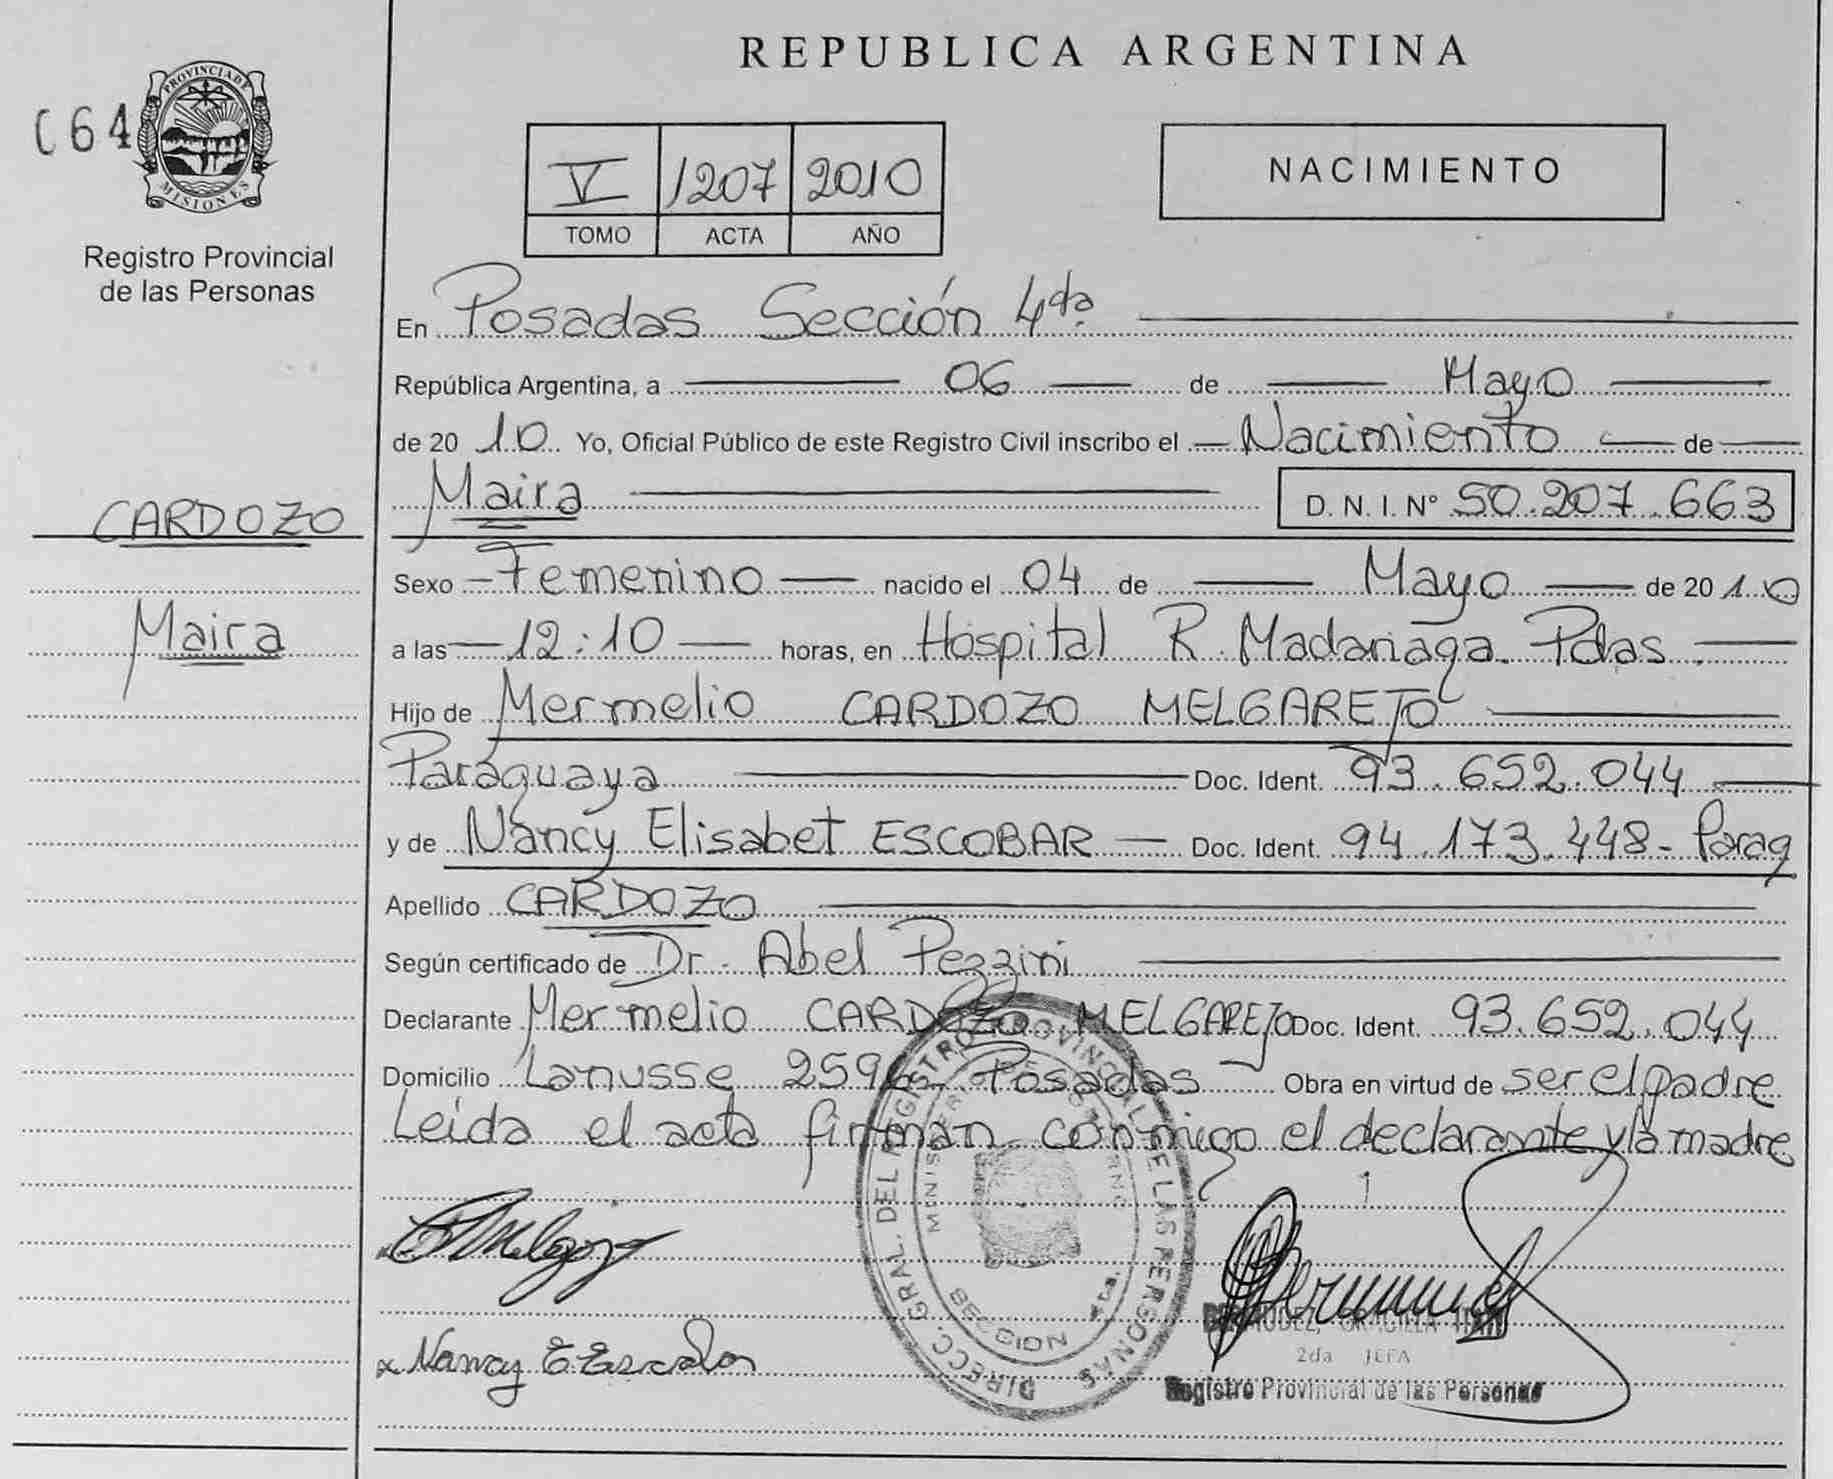 REPUBLICA ARGENTINA
C64
PROVINCIA DE
MISIONES
Registro Provincial
de las Personas
V 1207 2010
TOMO ACTA AÑO
NACIMIENTO
En Posadas Sección 4ta
República Argentina, a 06 de Mayo
de 20 10 Yo, Oficial Público de este Registro Civil inscribo el Nacimiento de
Maira D. N. I. N° 50.207.663
CARDOZO
Maira
Sexo Femenino nacido el 04 de Mayo de 20 10
a las 12:10 horas, en Hospital R. Madariaga. Pdas.
Hijo de Mermelio CARDOZO MELGAREJO
Paraguaya Doc. Ident. 93.652.044
y de Nancy Elisabet ESCOBAR Doc. Ident. 94.173.448- Parag
Apellido CARDOZO
Según certificado de Dr. Abel Pezzini
Declarante Mermelio CARDOZO MELGAREJO Doc. Ident. 93.652.044
Domicilio Lanusse Posadas Obra en virtud de ser el padre
Leida el acta firman conmigo el declarante y la madre
DIRECC. GRAL. DEL REGISTRO PROVINCIAL DE LAS PERSONAS
SECCION 4ta.
Nancy E Escobar
BERMUDEZ, GRACIELA ITATI
2da JEFA
Registro Provincial de las Personas